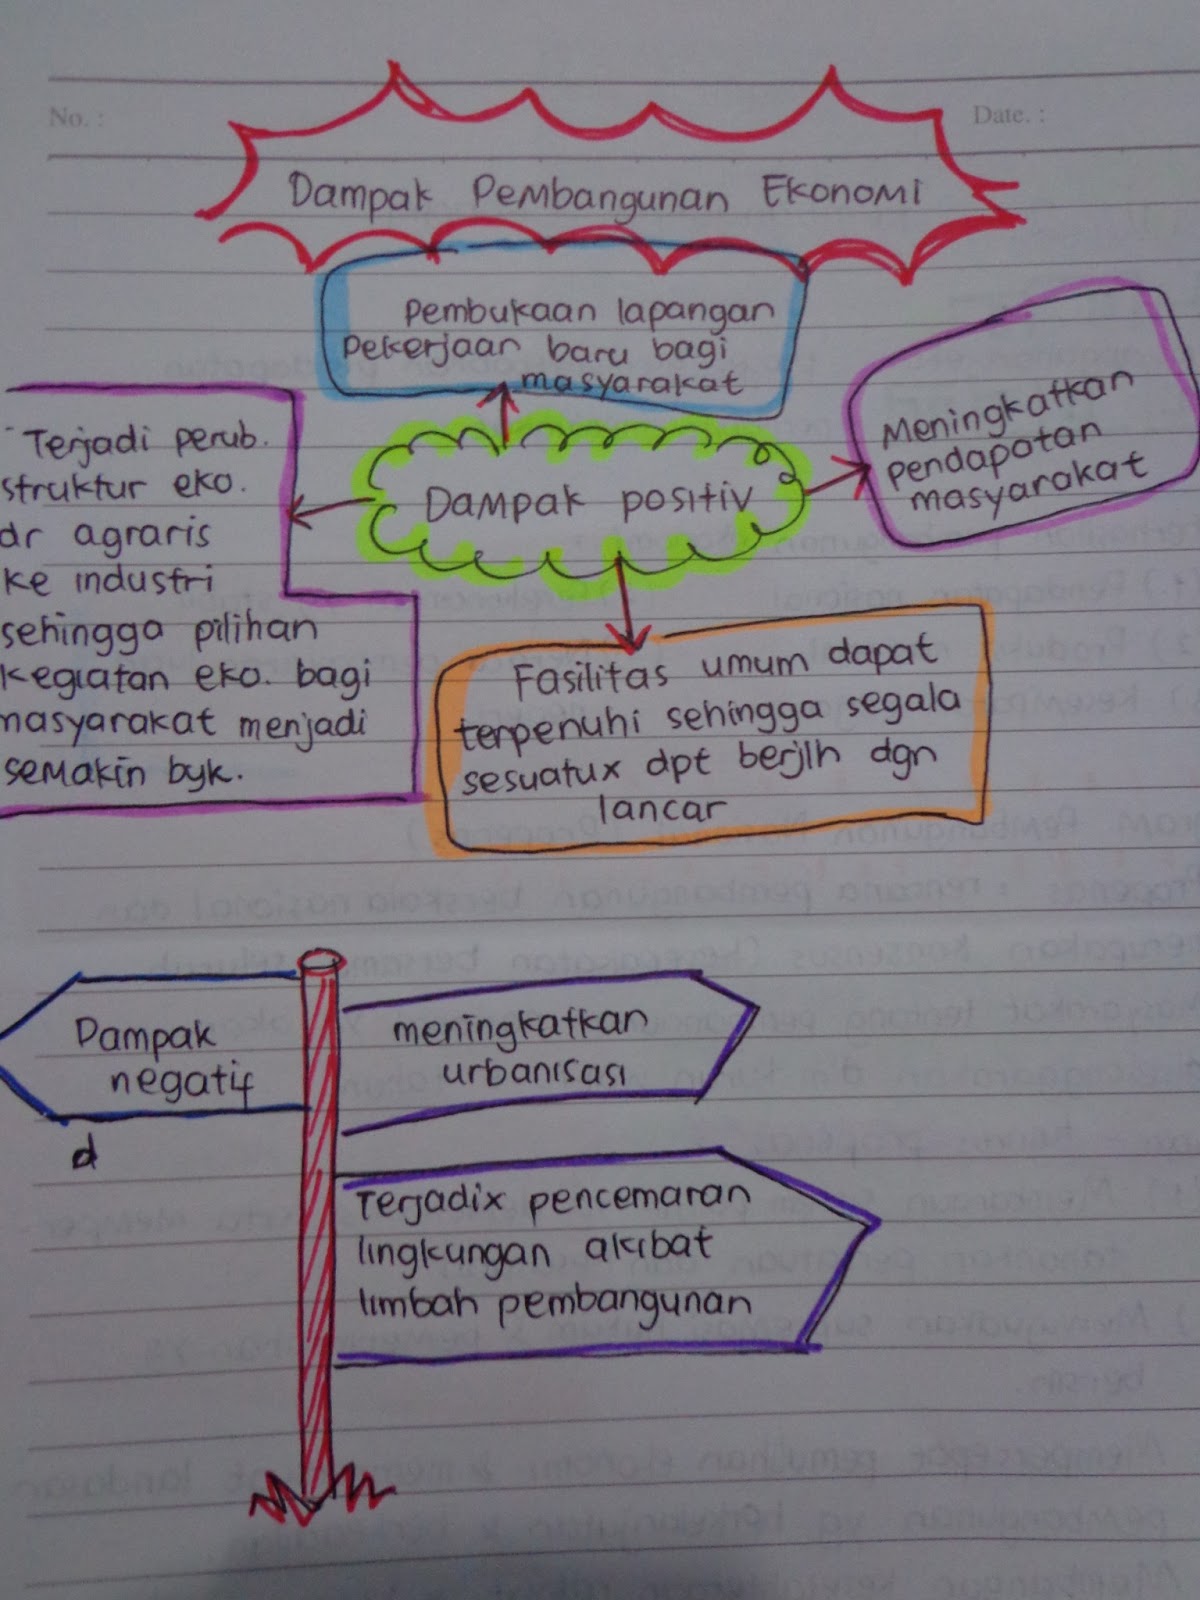 No. :
Date. :
Dampak Pembangunan Ekonomi
Pembukaan lapangan
pekerjaan baru bagi
masyarakat
Meningkatkan
pendapatan
masyarakat
Terjadi perub.
struktur eko.
dr agraris
ke industri
sehingga pilihan
kegiatan eko. bagi
masyarakat menjadi
semakin byk.
Dampak positiv
Fasilitas umum dapat
terpenuhi sehingga segala
sesuatux dpt berjlh dgn
lancar
Dampak
negatif
d
meningkatkan
urbanisasi
Terjadix pencemaran
lingkungan akibat
limbah pembangunan